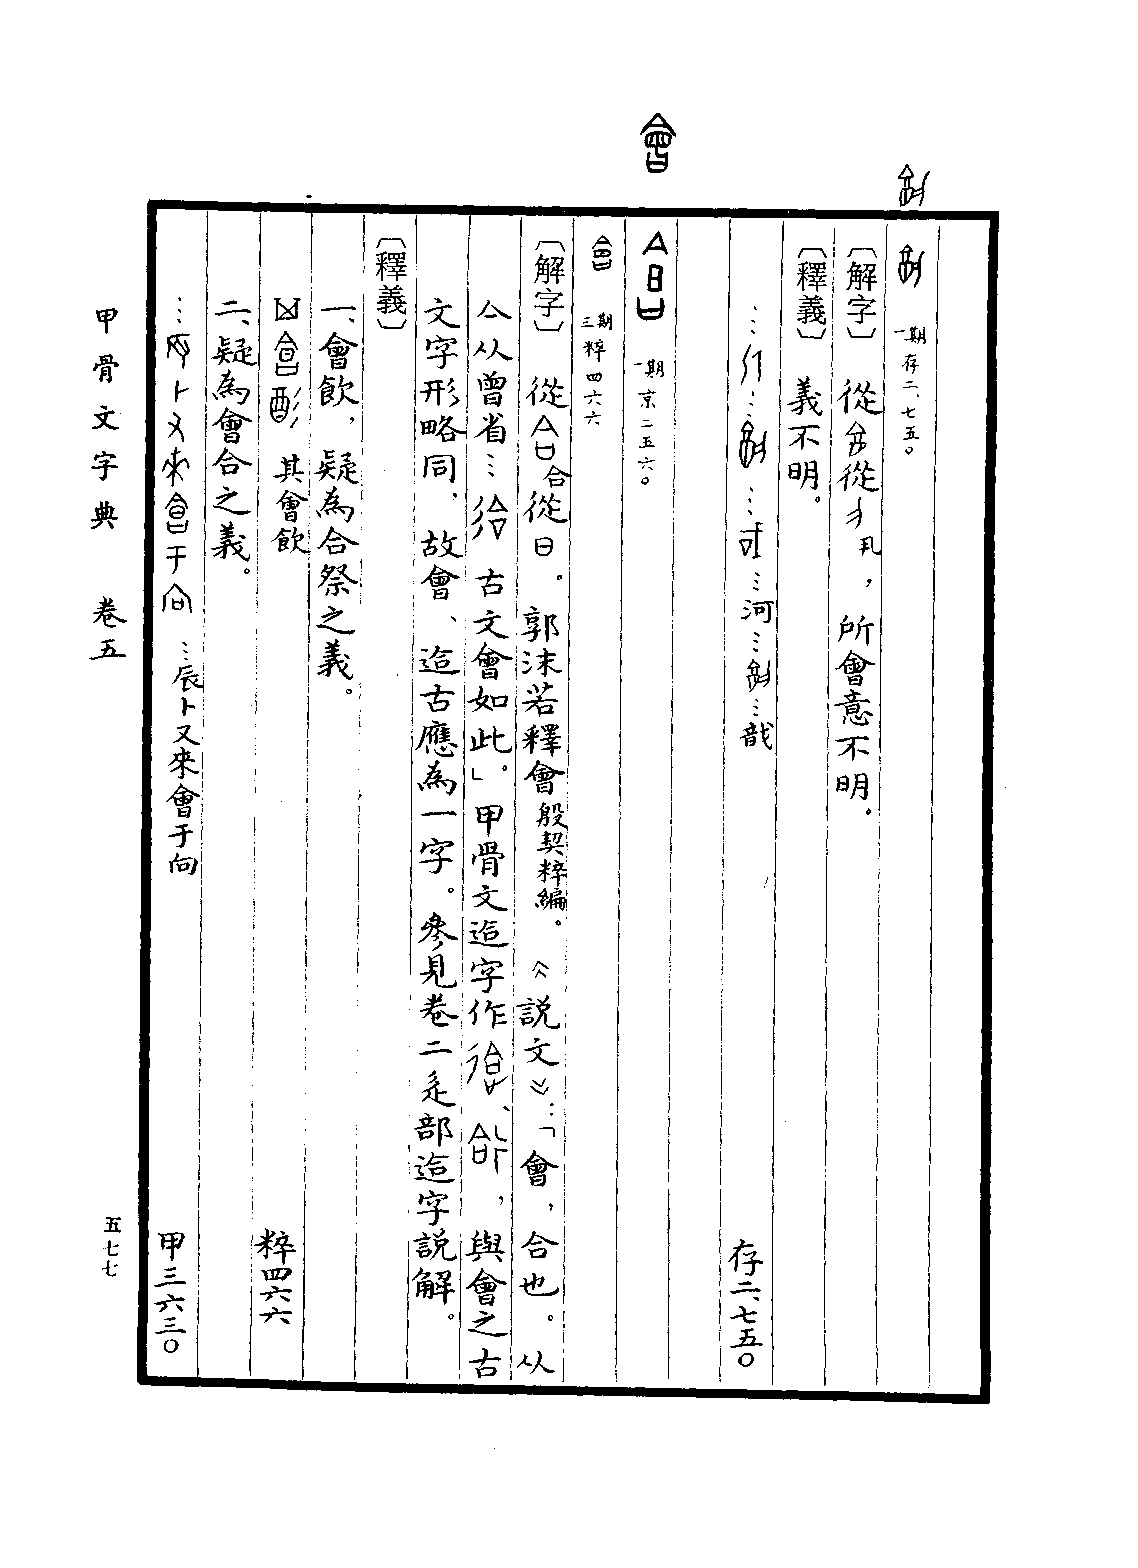 會
一期存二、七五〇
〔解字〕 從 從 丮，所會意不明。
〔釋義〕 義不明。
…… …… …… ……河…… ……戠 存二、七五〇
一期京二五六〇
三期粹四六六
〔解字〕 從 合從日。郭沫若釋會殷契粹編。《說文》：「會，合也。从
亼从曾省……㣛古文會如此。」甲骨文迨字作 、 ，與會之古
文字形略同，故會、迨古應為一字。參見卷二辵部迨字說解。
〔釋義〕
一、會飲，疑為合祭之義。
其會飲 粹四六六
二、疑為會合之義。
……辰卜又來會于向 甲三六三〇
甲骨文字典 卷五
五七七